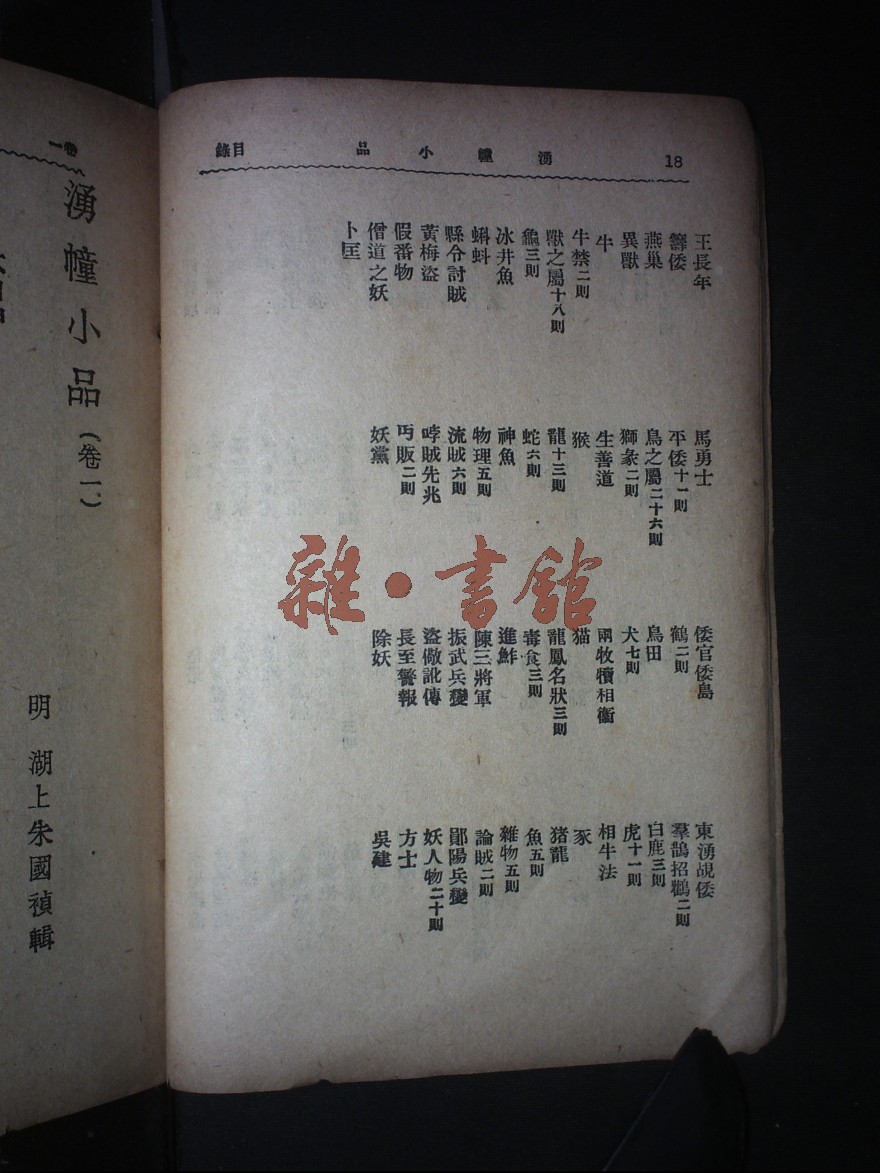 18 湧幢小品 目錄
王長年 馬勇士 倭官倭島 東湧覘倭
籌倭 平倭十一則 鶴二則 羣鵲招鸛二則
燕巢 鳥之屬二十六則 鳥田 白鹿三則
異獸 獅象二則 犬七則 虎十一則
牛 生善道 兩牧犢相衞 相牛法
牛禁二則 猴 猫 豕
獸之屬十八則 龍十三則 龍鳳名狀三則 猪龍
龜三則 蛇六則 毒食三則 魚五則
冰井魚 神魚 進鮓 雜物五則
蝌蚪 物理五則 陳三將軍 論賊二則
縣令討賊 流賊六則 振武兵變 鄖陽兵變
黃梅盜 哱賊先兆 盜儆訛傳 妖人物二十則
假番物 丐販二則 長至警報 方士
僧道之妖 妖黨 除妖 吳建
卜匡
雜·書館
卷一
湧幢小品(卷一)
明 湖上朱國禎輯